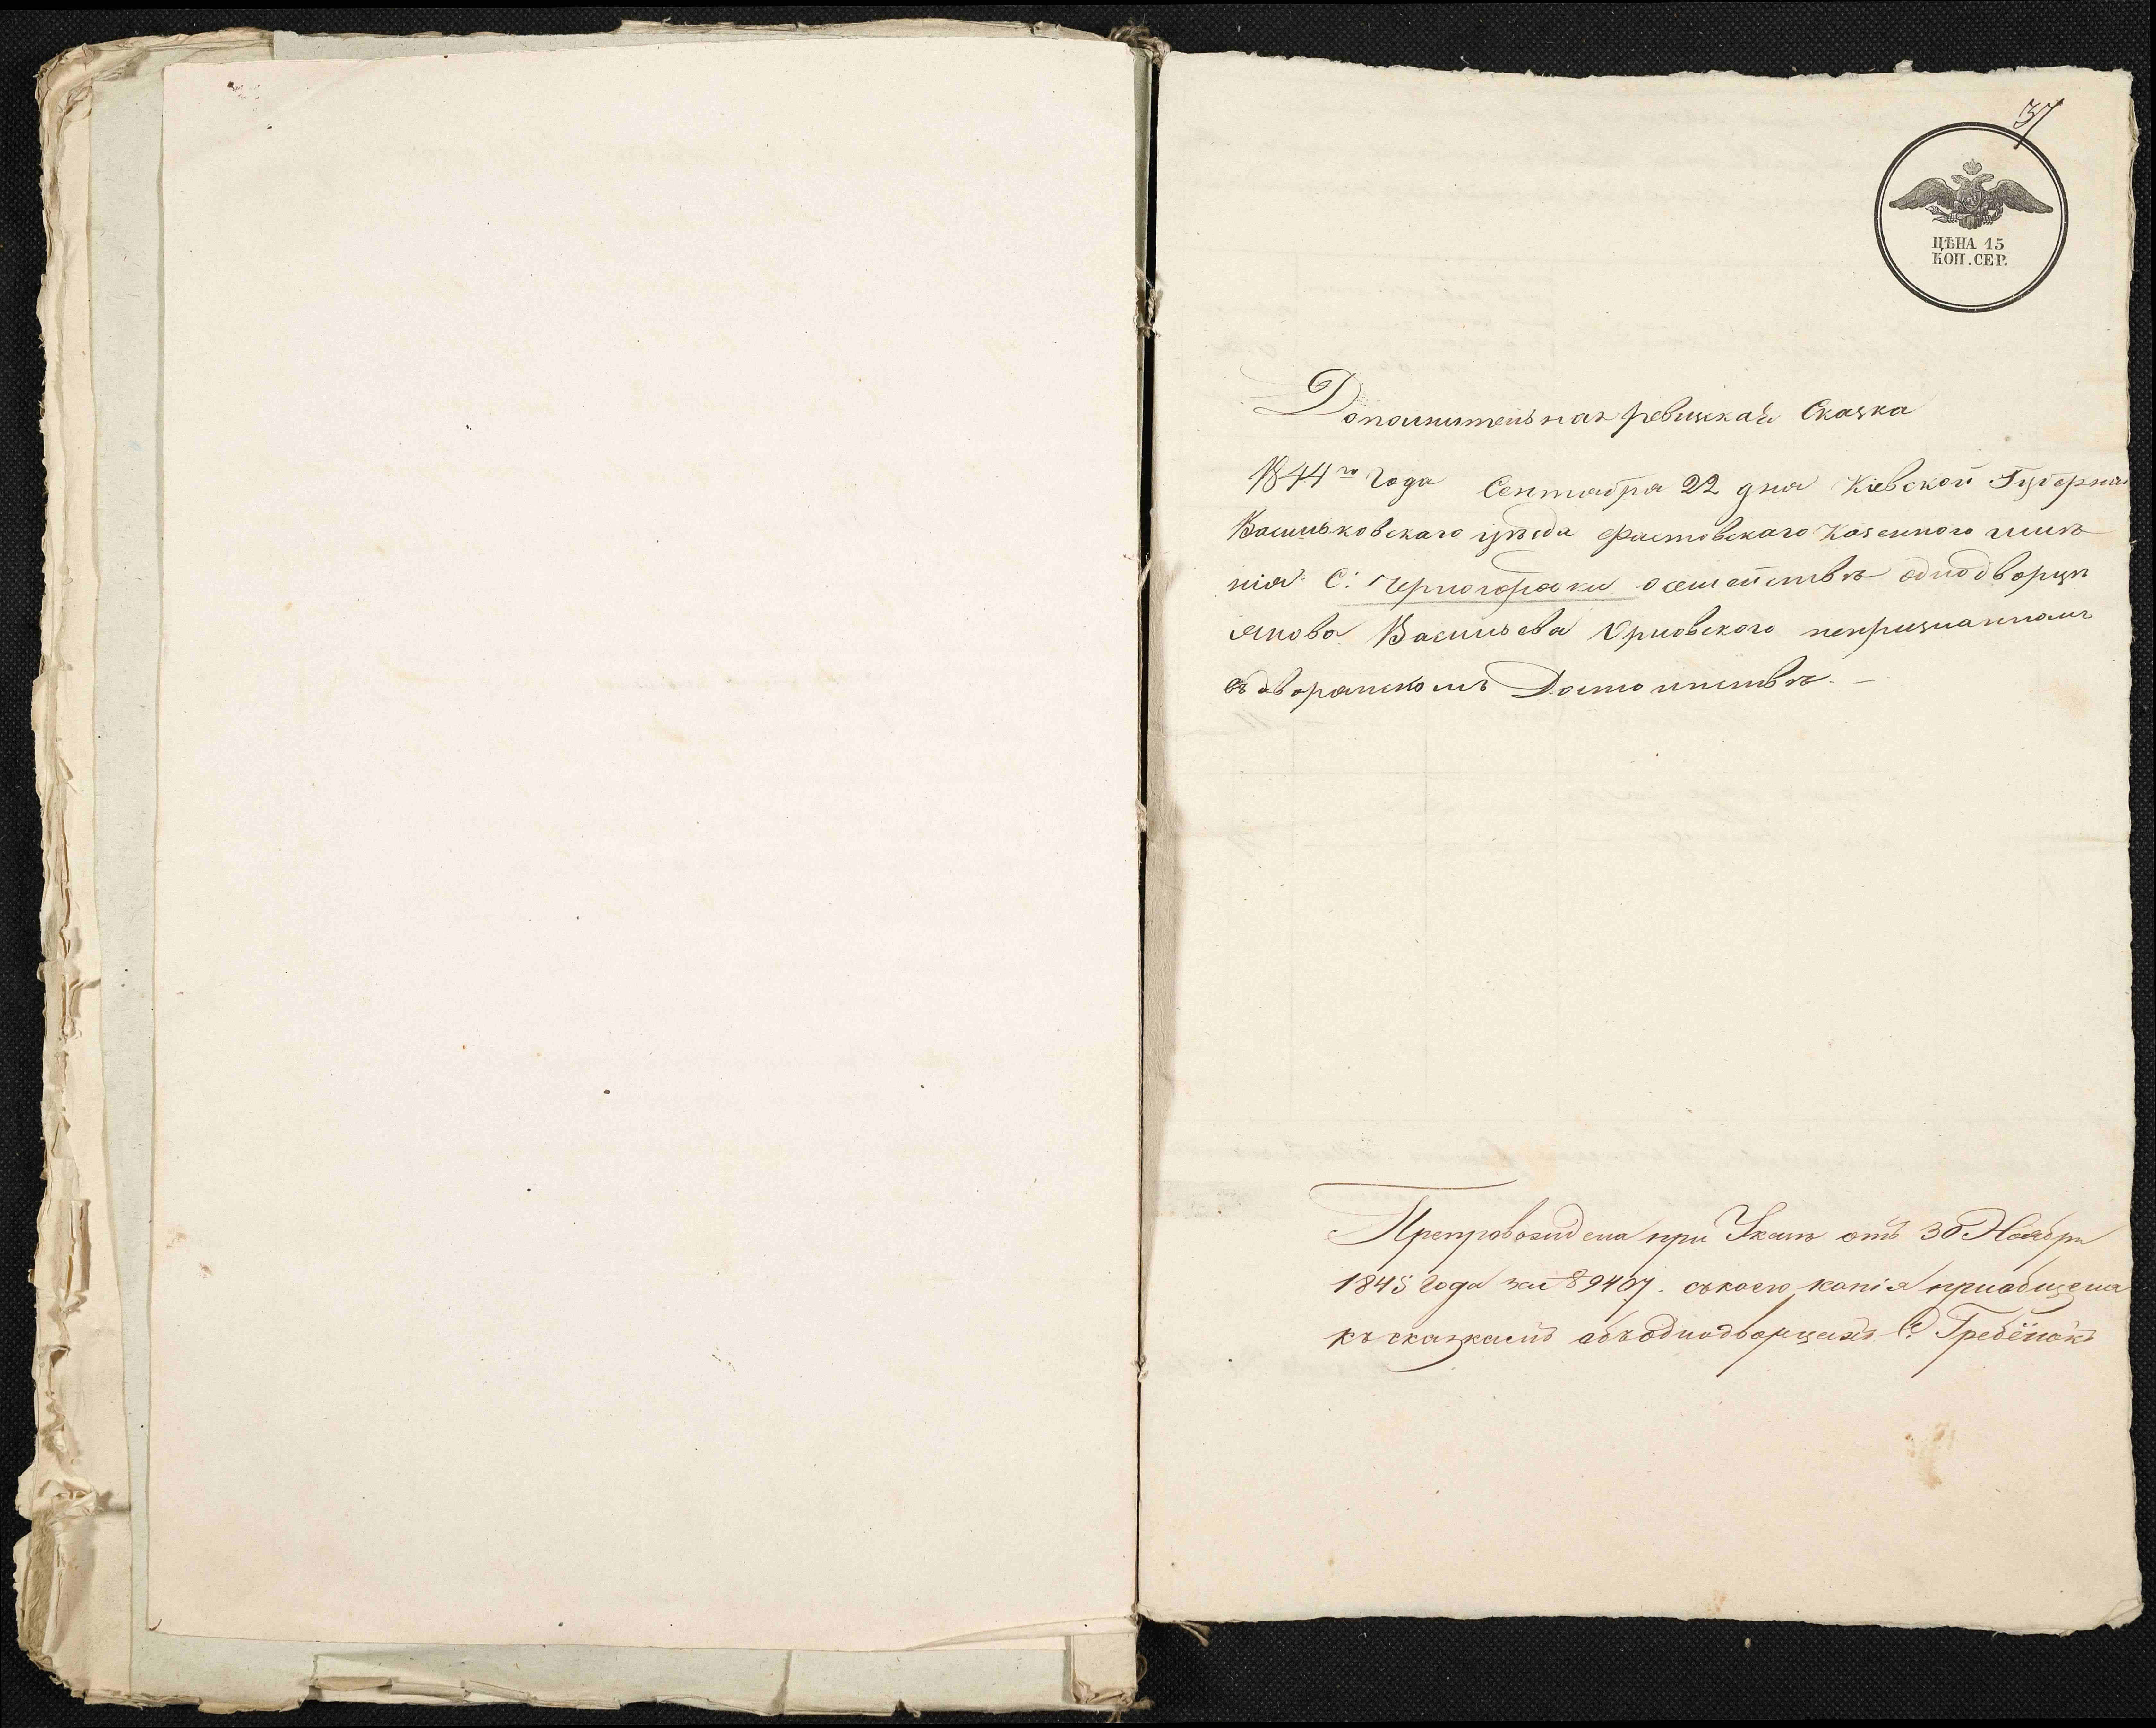 37
ЦѢНА 15
КОП. СЕР.
Дополнительная ревизская Сказка
1844го Года Сентября 22 дня Кіевской Губерніи
Васильковскаго уѣзда Фастовскаго Казенного имѣ
нія С: Черногородки о семействѣ однодворца
Якова Васильева Орловского непризнанномъ
въ дворянскомъ Достоинствѣ. —
Препровождена при Указѣ отъ 30 Ноября
1845 Года за № 89407. съ коего копія пріобщена
къ сказкамъ объ однодворцахъ С. Гребёнокъ